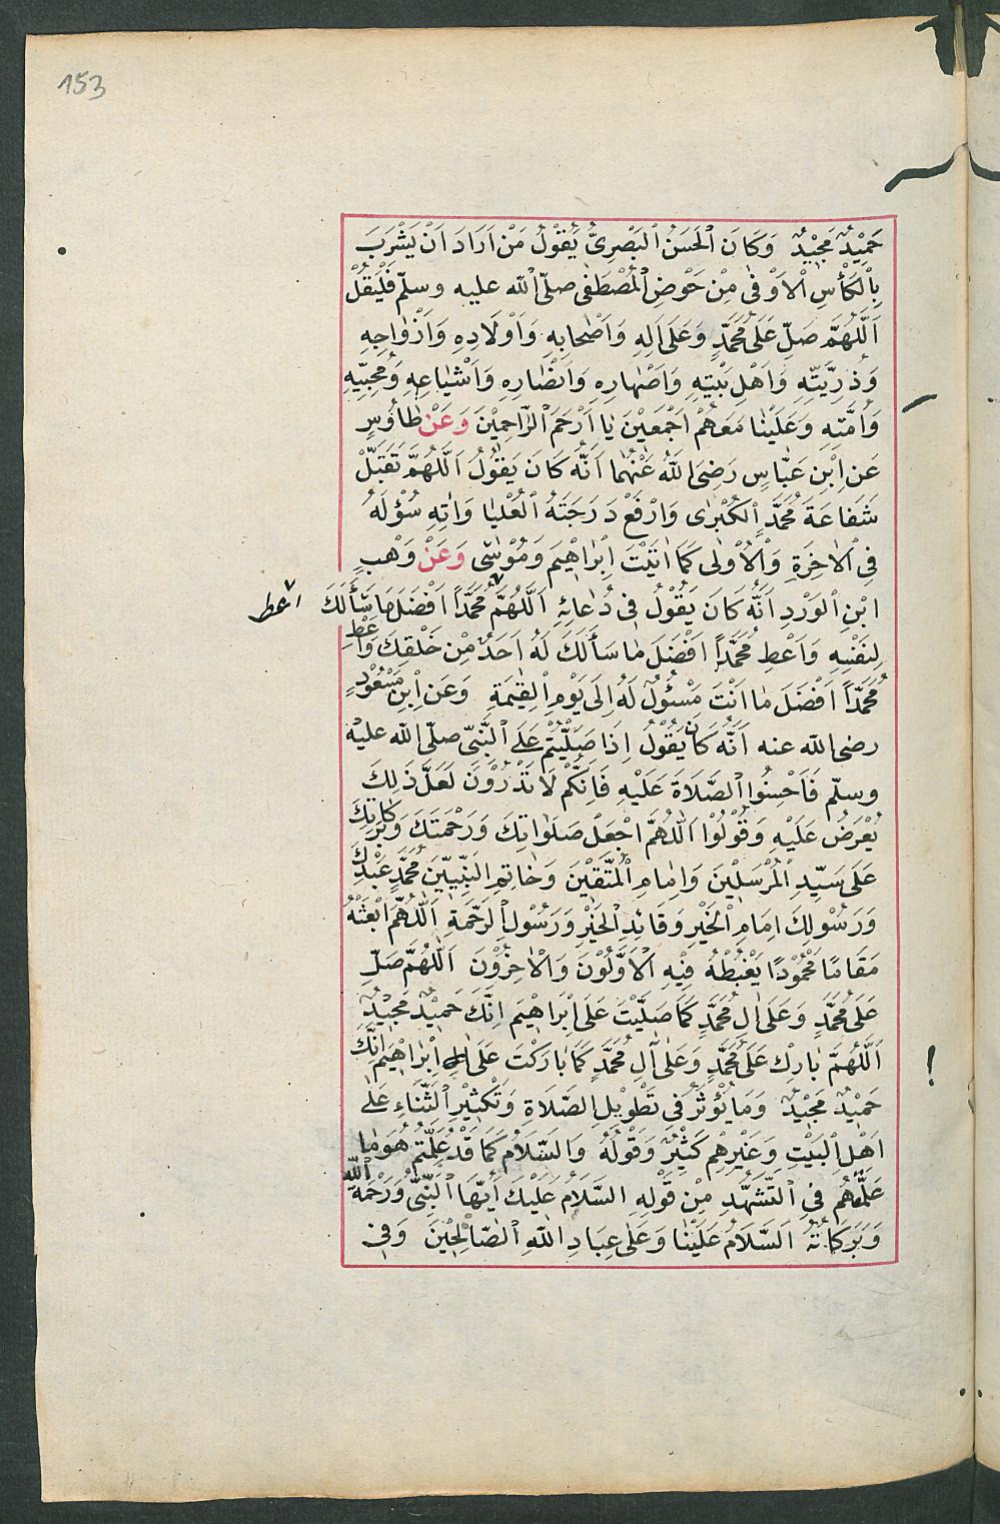 153
حَمِيْدٌ مَجِيْدٌ وَكَانَ الْحَسَنُ الْبَصْرِىُّ يَقُوْلُ مَنْ اَرَادَ اَنْ يَشْرَبَ
بِالْكَأْسِ الْاَوْفٰى مِنْ حَوْضِ الْمُصْطَفٰى صلّى الله عليه وسلّم فَلْيَقُلْ
اَللّٰهُمَّ صَلِّ عَلٰى مُحَمَّدٍ وَعَلٰى اٰلِهِ وَاَصْحَابِهِ وَاَوْلَادِهِ وَاَزْوَاجِهِ
وَذُرِّيَّتِهِ وَاَهْلِ بَيْتِهِ وَاَصْهَارِهِ وَاَنْصَارِهِ وَاَشْيَاعِهِ وَمُحِبِّيْهِ
وَاُمَّتِهِ وَعَلَيْنَا مَعَهُمْ اَجْمَعِيْنَ يَا اَرْحَمَ الرَّاحِمِيْنَ وَعَنْ طَاوُسٍ
عَنِ ابْنِ عَبَّاسٍ رَضِىَ اللّٰهُ عَنْهُمَا اَنَّهُ كَانَ يَقُوْلُ اَللّٰهُمَّ تَقَبَّلْ
شَفَاعَةَ مُحَمَّدٍ الْكُبْرٰى وَارْفَعْ دَرَجَتَهُ الْعُلْيَا وَاٰتِهِ سُؤْلَهُ
فِى الْاٰخِرَةِ وَالْاُوْلٰى كَمَا اٰتَيْتَ اِبْرَاهِيْمَ وَمُوْسٰى وَعَنْ وَهْبٍ
ابْنِ الْوَرْدِ اَنَّهُ كَانَ يَقُوْلُ فِى دُعَائِهِ اَللّٰهُمَّ مُحَمَّدًا اَفْضَلَ مَا سَأَلَكَ
اعط
لِنَفْسِهِ وَاَعْطِ مُحَمَّدًا اَفْضَلَ مَا سَأَلَكَ لَهُ اَحَدٌ مِنْ خَلْقِكَ وَاَعْطِ
مُحَمَّدًا اَفْضَلَ مَا اَنْتَ مَسْئُوْلٌ لَهُ اِلٰى يَوْمِ الْقِيٰمَةِ وَعَنِ ابْنِ مَسْعُوْدٍ
رضى الله عنه اَنَّهُ كَانَ يَقُوْلُ اِذَا صَلَّيْتُمْ عَلَى النَّبِىِّ صلّى الله عليه
وسلّم فَاَحْسِنُوا الصَّلَاةَ عَلَيْهِ فَاِنَّكُمْ لَا تَدْرُوْنَ لَعَلَّ ذٰلِكَ
يُعْرَضُ عَلَيْهِ وَقُوْلُوْا اَللّٰهُمَّ اجْعَلْ صَلَوَاتِكَ وَرَحْمَتَكَ وَبَرَكَاتِكَ
عَلٰى سَيِّدِ الْمُرْسَلِيْنَ وَاِمَامِ الْمُتَّقِيْنَ وَخَاتِمِ النَّبِيِّيْنَ مُحَمَّدٍ عَبْدِكَ
وَرَسُوْلِكَ اِمَامِ الْخَيْرِ وَقَائِدِ الْخَيْرِ وَرَسُوْلِ الرَّحْمَةِ اَللّٰهُمَّ ابْعَثْهُ
مَقَامًا مَحْمُوْدًا يَغْبِطُهُ فِيْهِ الْاَوَّلُوْنَ وَالْاٰخِرُوْنَ اَللّٰهُمَّ صَلِّ
عَلٰى مُحَمَّدٍ وَعَلٰى اٰلِ مُحَمَّدٍ كَمَا صَلَّيْتَ عَلٰى اِبْرَاهِيْمَ اِنَّكَ حَمِيْدٌ مَجِيْدٌ
اَللّٰهُمَّ بَارِكْ عَلٰى مُحَمَّدٍ وَعَلٰى اٰلِ مُحَمَّدٍ كَمَا بَارَكْتَ عَلٰى اٰلِ اِبْرَاهِيْمَ اِنَّكَ
حَمِيْدٌ مَجِيْدٌ وَمَا يُؤْثَرُ فِى تَطْوِيْلِ الصَّلَاةِ وَتَكْثِيْرِ الثَّنَاءِ عَلٰى
اَهْلِ الْبَيْتِ وَغَيْرِهِمْ كَثِيْرٌ وَقَوْلُهُ وَالسَّلَامُ كَمَا قَدْ عُلِّمْتُمْ هُوَ مَا
عَلَّمَهُمْ فِى التَّشَهُّدِ مِنْ قَوْلِهِ السَّلَامُ عَلَيْكَ اَيُّهَا النَّبِىُّ وَرَحْمَةُ اللّٰهِ
وَبَرَكَاتُهُ اَلسَّلَامُ عَلَيْنَا وَعَلٰى عِبَادِ اللّٰهِ الصَّالِحِيْنَ وَفِى